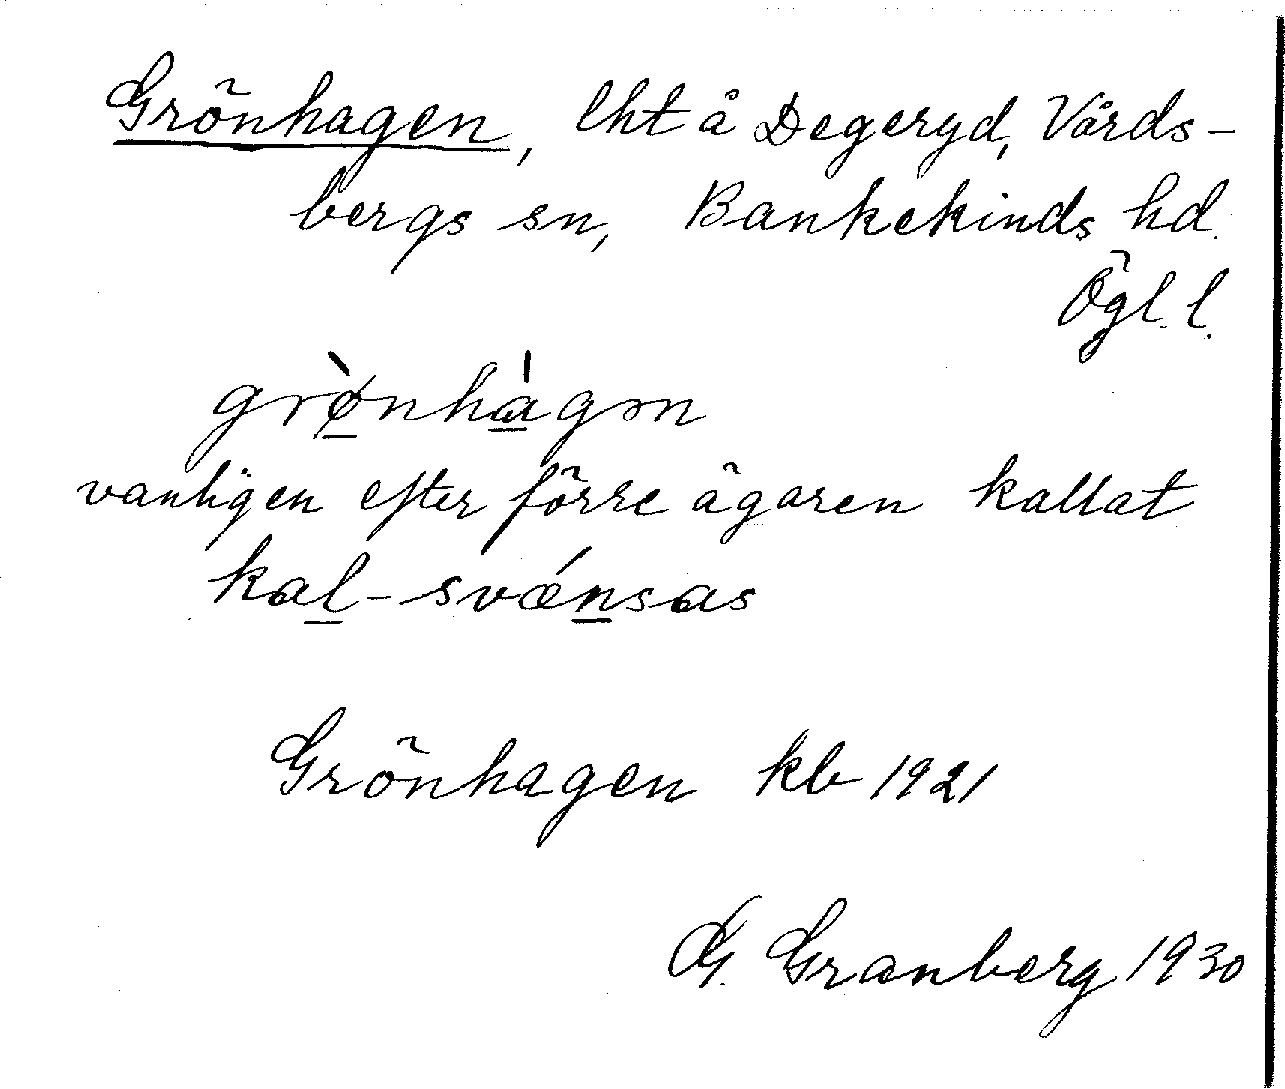 Grönhagen, lht å Degeryd, Vårds-
bergs sn, Bankekinds hd.
Ögl. l.
grø̀nhàgən
vanligen efter förre ägaren kallat
kal-svǽnsas
Grönhagen kb 1921
G. Granberg 1930